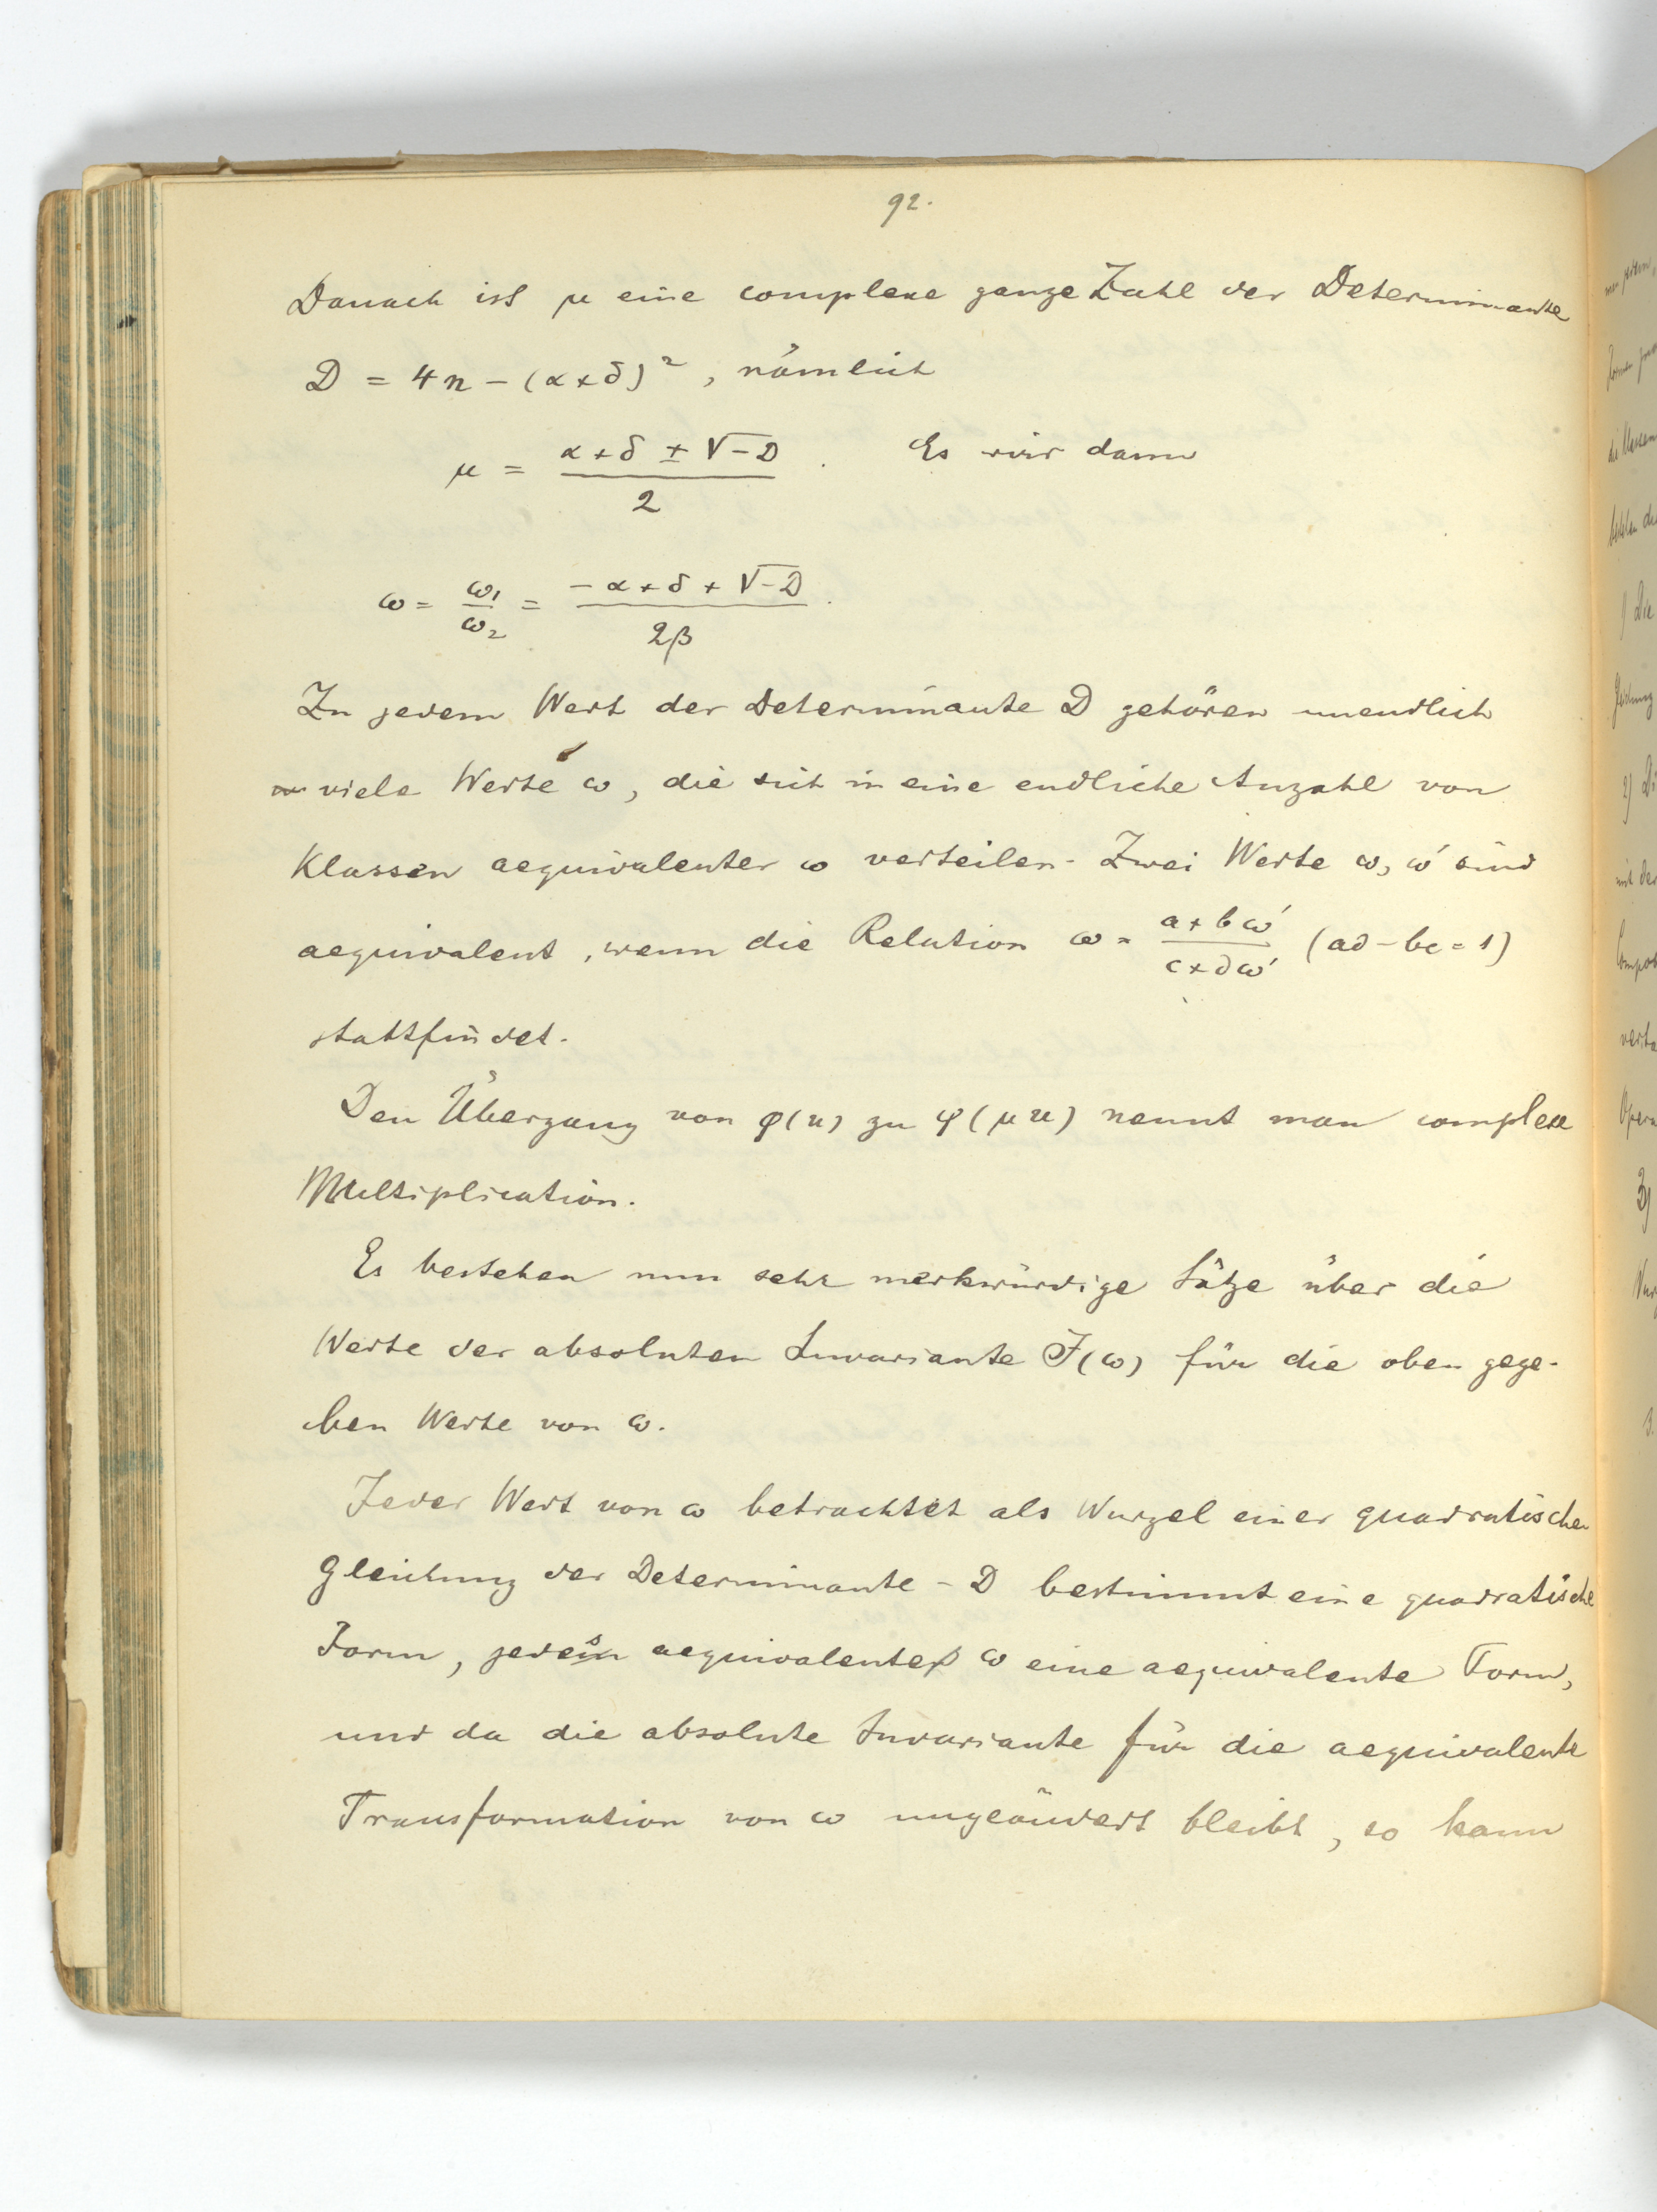 92.
Danach ist μ eine complexe ganze Zahl der Determinante
D = 4n - (α+δ)², nämlich
μ = (α+δ ± √-D)/2 . Es wir dann
ω = ω₁/ω₂ = (-α+δ+√-D)/2β .
Zu jedem Wert der Determinante D gehören unendlich
viele Werte ω, die sich in eine endliche Anzahl von
Klassen aequivalenter ω verteilen. Zwei Werte ω, ω' sind
aequivalent, wenn die Relation ω = (a+bω')/(c+dω') (ad-bc=1)
stattfindet.
Den Übergang von φ(u) zu φ(μu) nennt man complexe
Multiplication.
Es bestehen nun sehr merkwürdige Sätze über die
Werte der absoluten Invariante J(ω) für die oben gege-
ben Werte von ω.
Jeder Wert von ω betrachtet als Wurzel einer quadratischen
Gleichung der Determinante -D bestimmt eine quadratische
Form, jedes aequivalente ω eine aequivalente Form,
und da die absolute Invariante für die aequivalente
Transformation von ω ungeändert bleibt, so kann